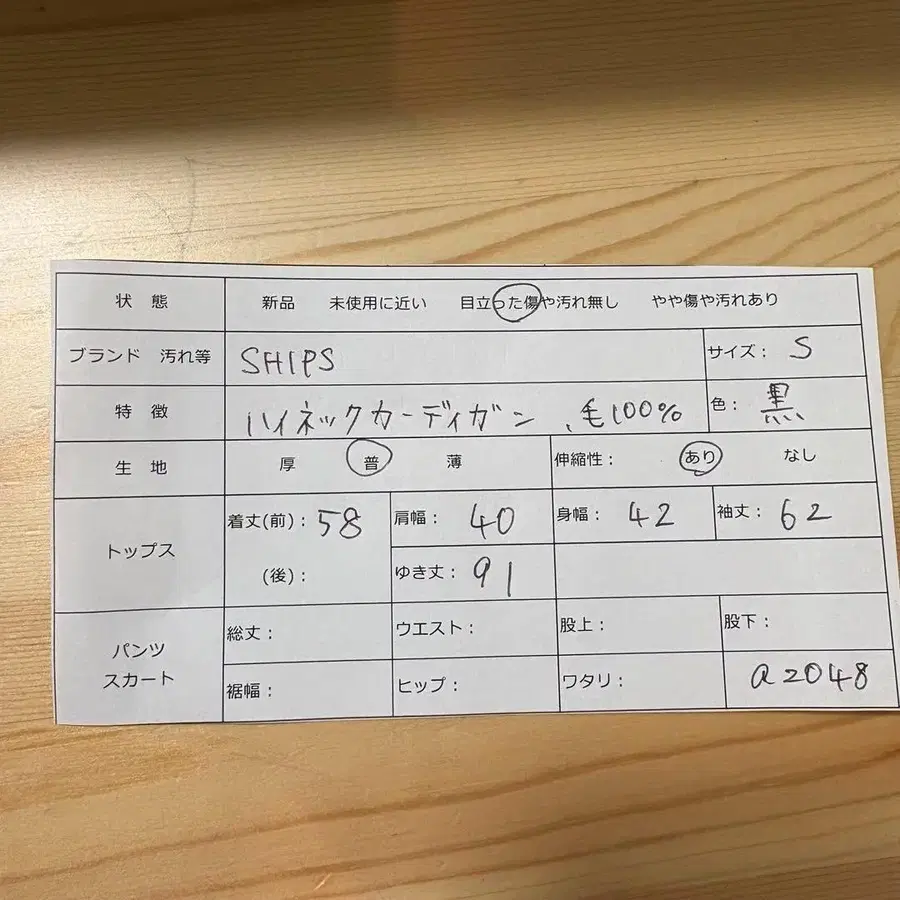 状 態 新品 未使用に近い 目立った傷や汚れ無し やや傷や汚れあり
ブランド 汚れ等 SHIPS サイズ： S
特 徴 ハイネックカーディガン 、毛100% 色： 黒
生 地 厚 普 薄 伸縮性： あり なし
トップス 着丈(前)： 58 肩幅： 40 身幅： 42 袖丈： 62
(後)： ゆき丈： 91
パンツ スカート 総丈： ウエスト： 股上： 股下：
裾幅： ヒップ： ワタリ： a2048